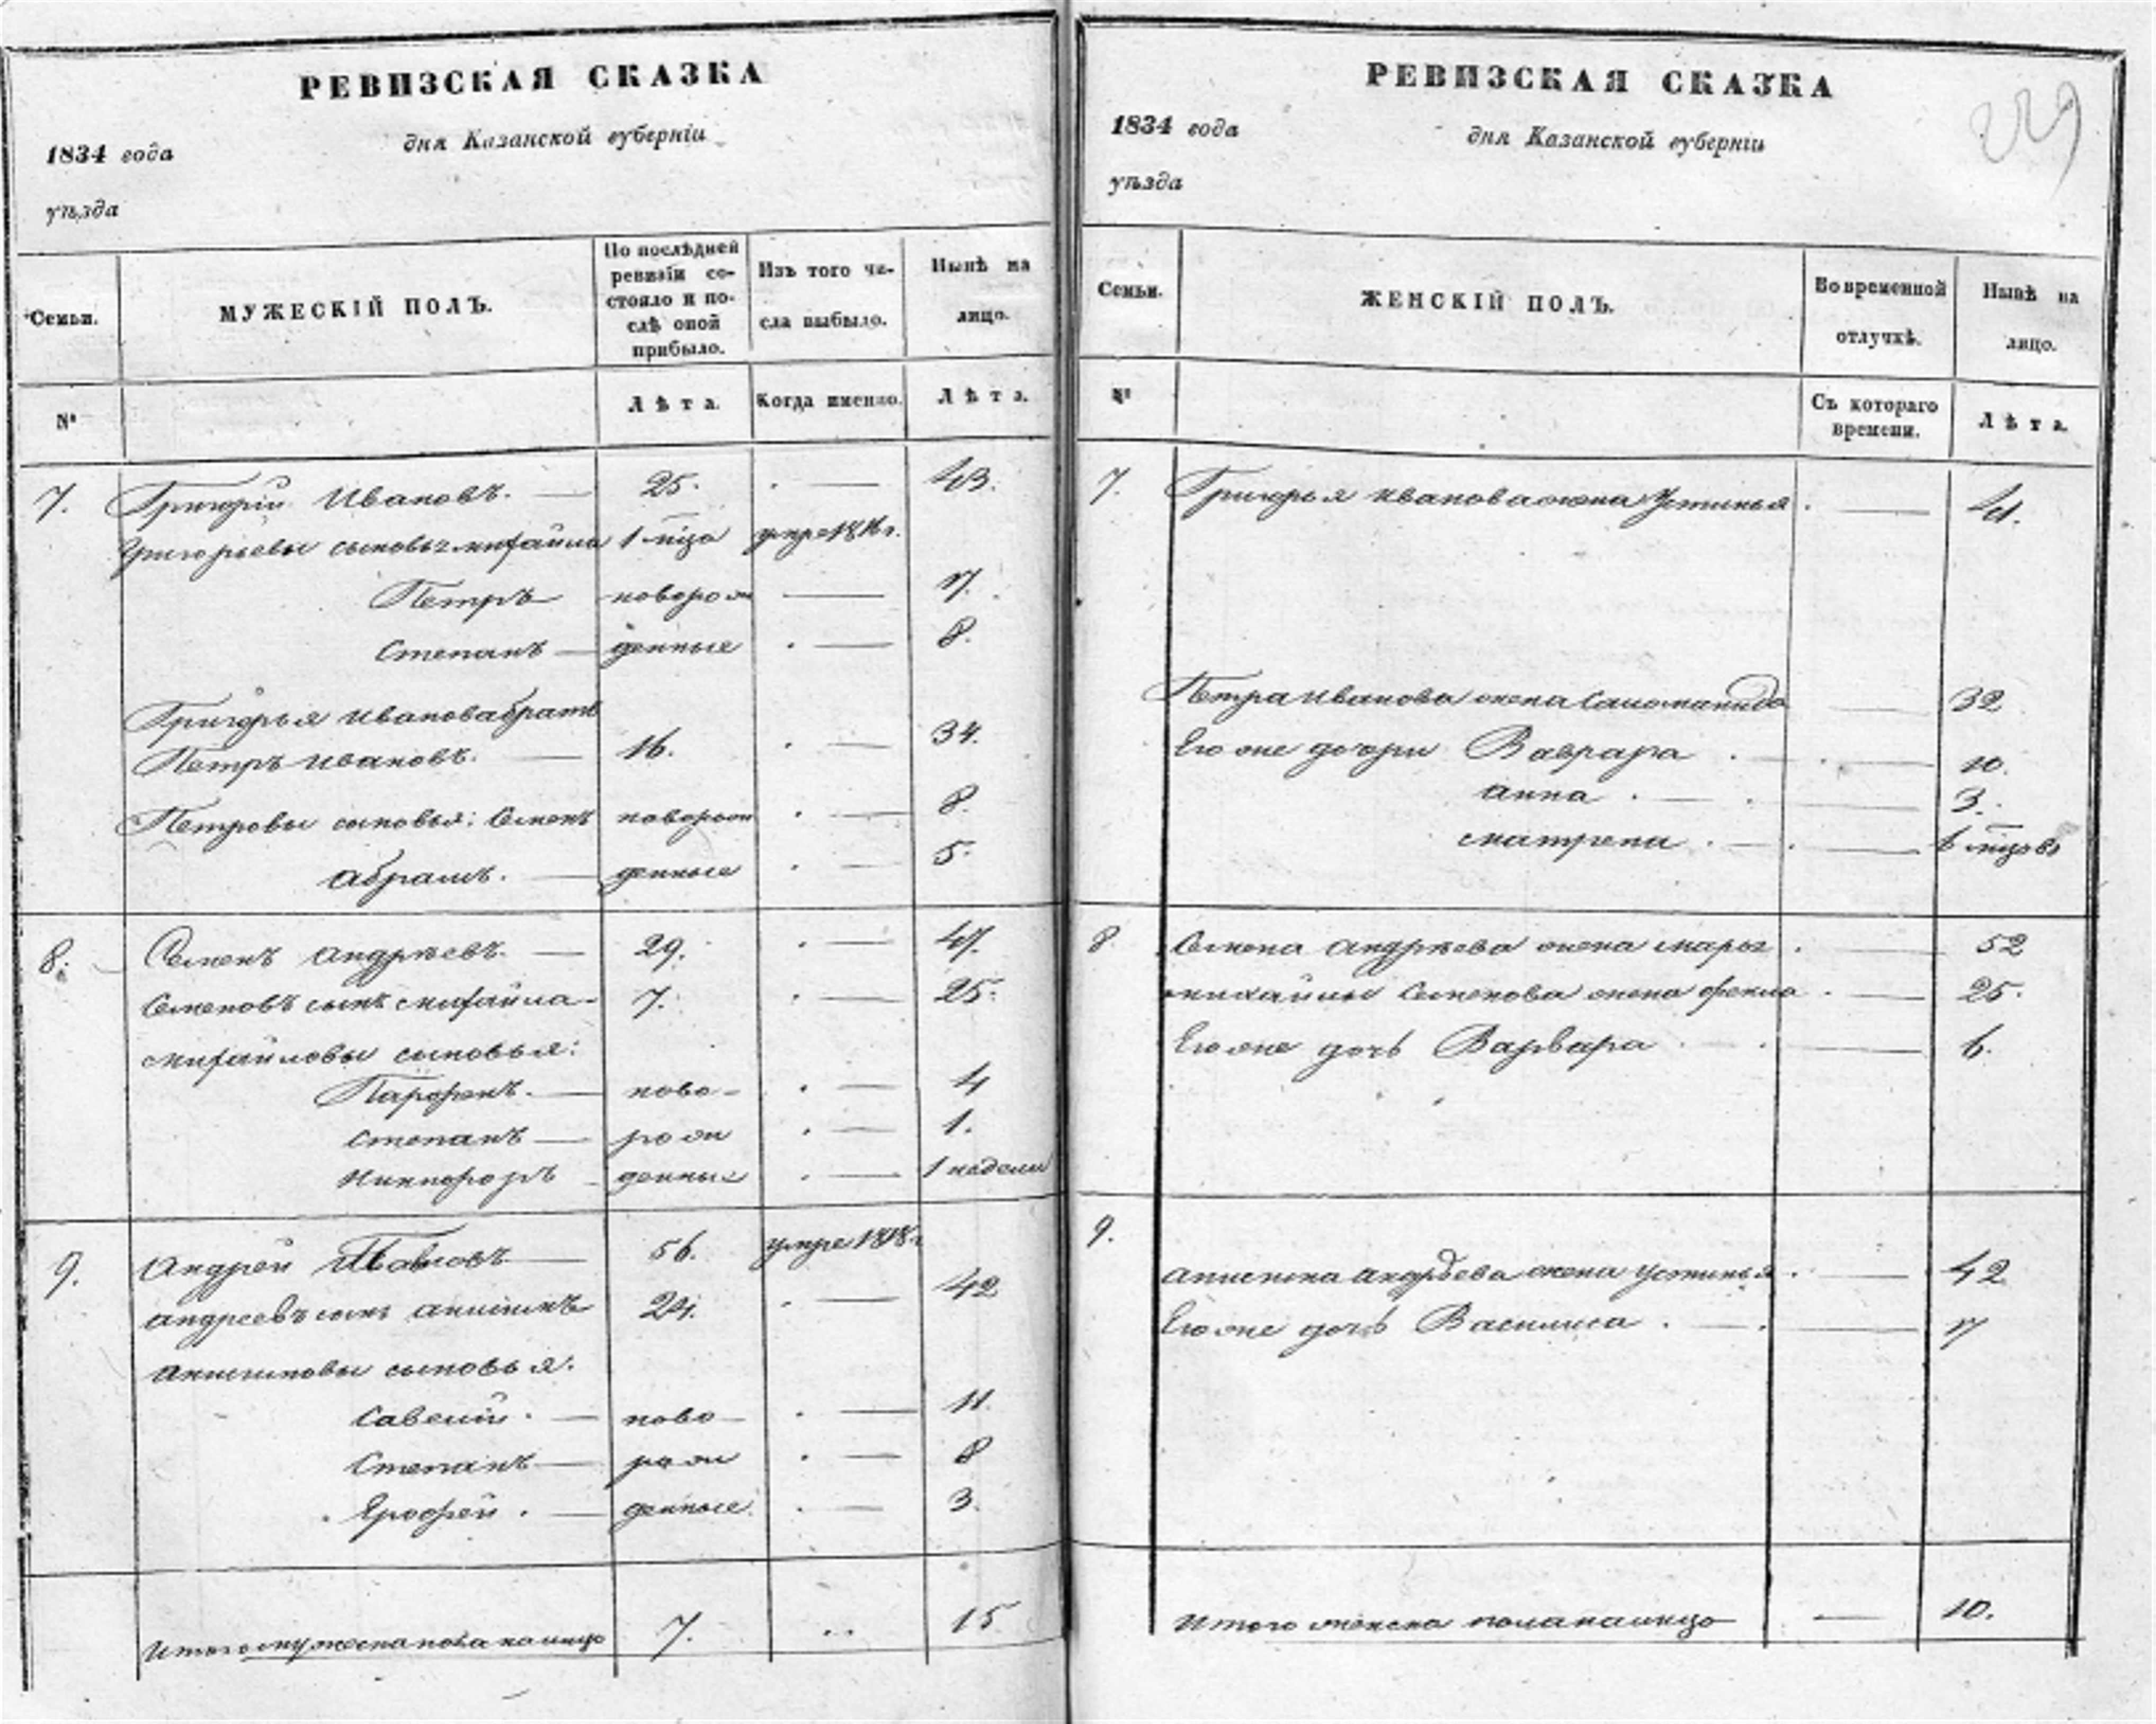 РЕВИЗСКАЯ СКАЗКА
1834 года дня Казанской губерніи
уѣзда
Семьи. МУЖЕСКІЙ ПОЛЪ. По послѣдней ревизіи состояло и послѣ оной прибыло. Изъ того числа выбыло. Нынѣ на лицо.
№ Лѣта. Когда именно. Лѣта.
7. Григорій Ивановъ. — 25. — 43.
Григорьевы сыновья Михайла 1 мца умре 18 г.
Петръ новорож — 17.
Степанъ — денные — 8.
Григорья Иванова братъ
Петръ Ивановъ. — 16. — 34.
Петровы сыновья: Семенъ новорож — 8.
Абрамъ. — денные — 5.
8. Семенъ Андрѣевъ. — 29. — 47.
Семеновъ сынъ Михайла - 7. — 25.
Михайловы сыновья:
Парфенъ. — ново- — 4
Степанъ — рож — 1.
Никифоръ денные — 1 недели
9. Андрей Павловъ — 56. умре 1818 г.
Андреевъ сынъ Анисимъ 24. — 42
Анисимовы сыновья:
Савелий. — ново- — 11.
Степанъ — рож — 8
Ерофей. — денные. — 3.
Итого мужеска пола на лицо 7. .. 15
РЕВИЗСКАЯ СКАЗКА
229
1834 года дня Казанской губерніи
уѣзда
Семьи. ЖЕНСКІЙ ПОЛЪ. Во временной отлучкѣ. Нынѣ на лицо.
№ Съ котораго времени. Лѣта.
7. Григорья Иванова жена Устинья. — 41.
Петра Иванова жена Саломанида — 32
Его же дочери Варвара. — 10.
Анна. — 3.
Матрена. — мцовъ
8 Семена Андрѣева жена Марья. — 52
Михайлы Семенова жена Фекла. — 25.
Его же дочь Варвара — 6.
9.
Анисима Андрѣева жена Устинья. — 42
Его же дочь Василиса. — 17
Итого женска пола на лицо — 10.